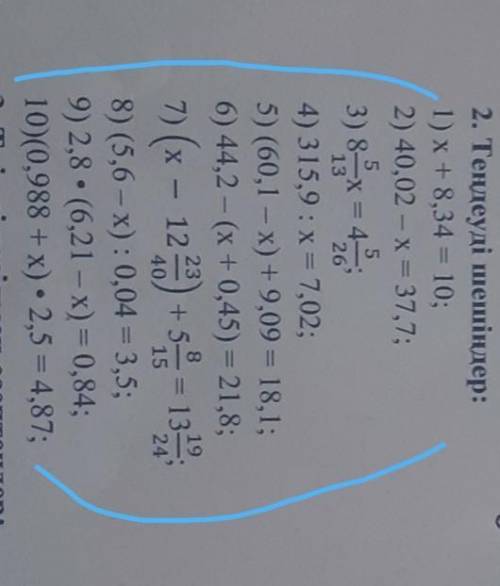 2. Теңдеуді шешіңдер:
1) x + 8,34 = 10;
2) 40,02 − x = 37,7;
3) 8 5/13 x = 4 5/26;
4) 315,9 : x = 7,02;
5) (60,1 − x) + 9,09 = 18,1;
6) 44,2 − (x + 0,45) = 21,8;
7) (x − 12 23/40) + 5 8/15 = 13 19/24;
8) (5,6 − x) : 0,04 = 3,5;
9) 2,8 • (6,21 − x) = 0,84;
10)(0,988 + x) • 2,5 = 4,87;